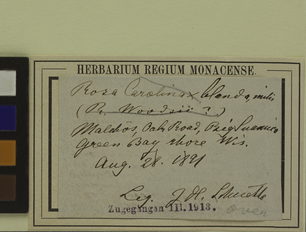 HERBARIUM REGIUM MONACENSE.
Rosa Carolina blanda, mihi
(R. Woodsii ?)
Road,
Green Bay shore Wis.
Aug. 28. 1891
Leg. J. H. Schuette
Zugegangen III. 1913.